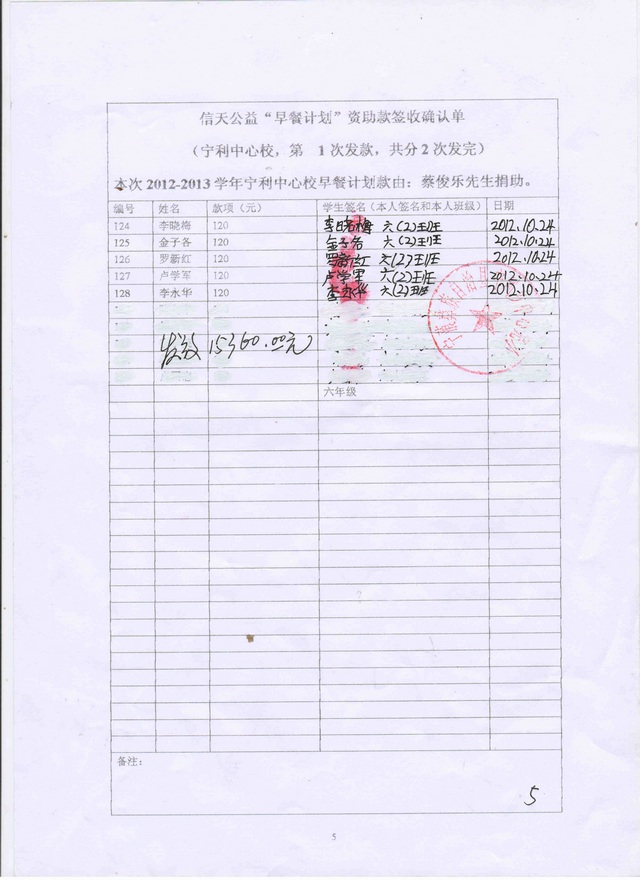 信天公益“早餐计划”资助款签收确认单
（宁利中心校，第 1次发款，共分2次发完）
本次 2012-2013 学年宁利中心校早餐计划款由：蔡俊乐先生捐助。
编号 姓名 款项（元） 学生签名（本人签名和本人班级） 日期
124 李晓梅 120 李晓梅 六(2)班 2012.10.24
125 金子各 120 金子各 六(2)班 2012.10.24
126 罗新红 120 罗新红 六(2)班 2012.10.24
127 卢学军 120 卢学军 六(2)班 2012.10.24
128 李永华 120 李永华 六(2)班 2012.10.24
发放 15360.00元
六年级
备注：
5
5